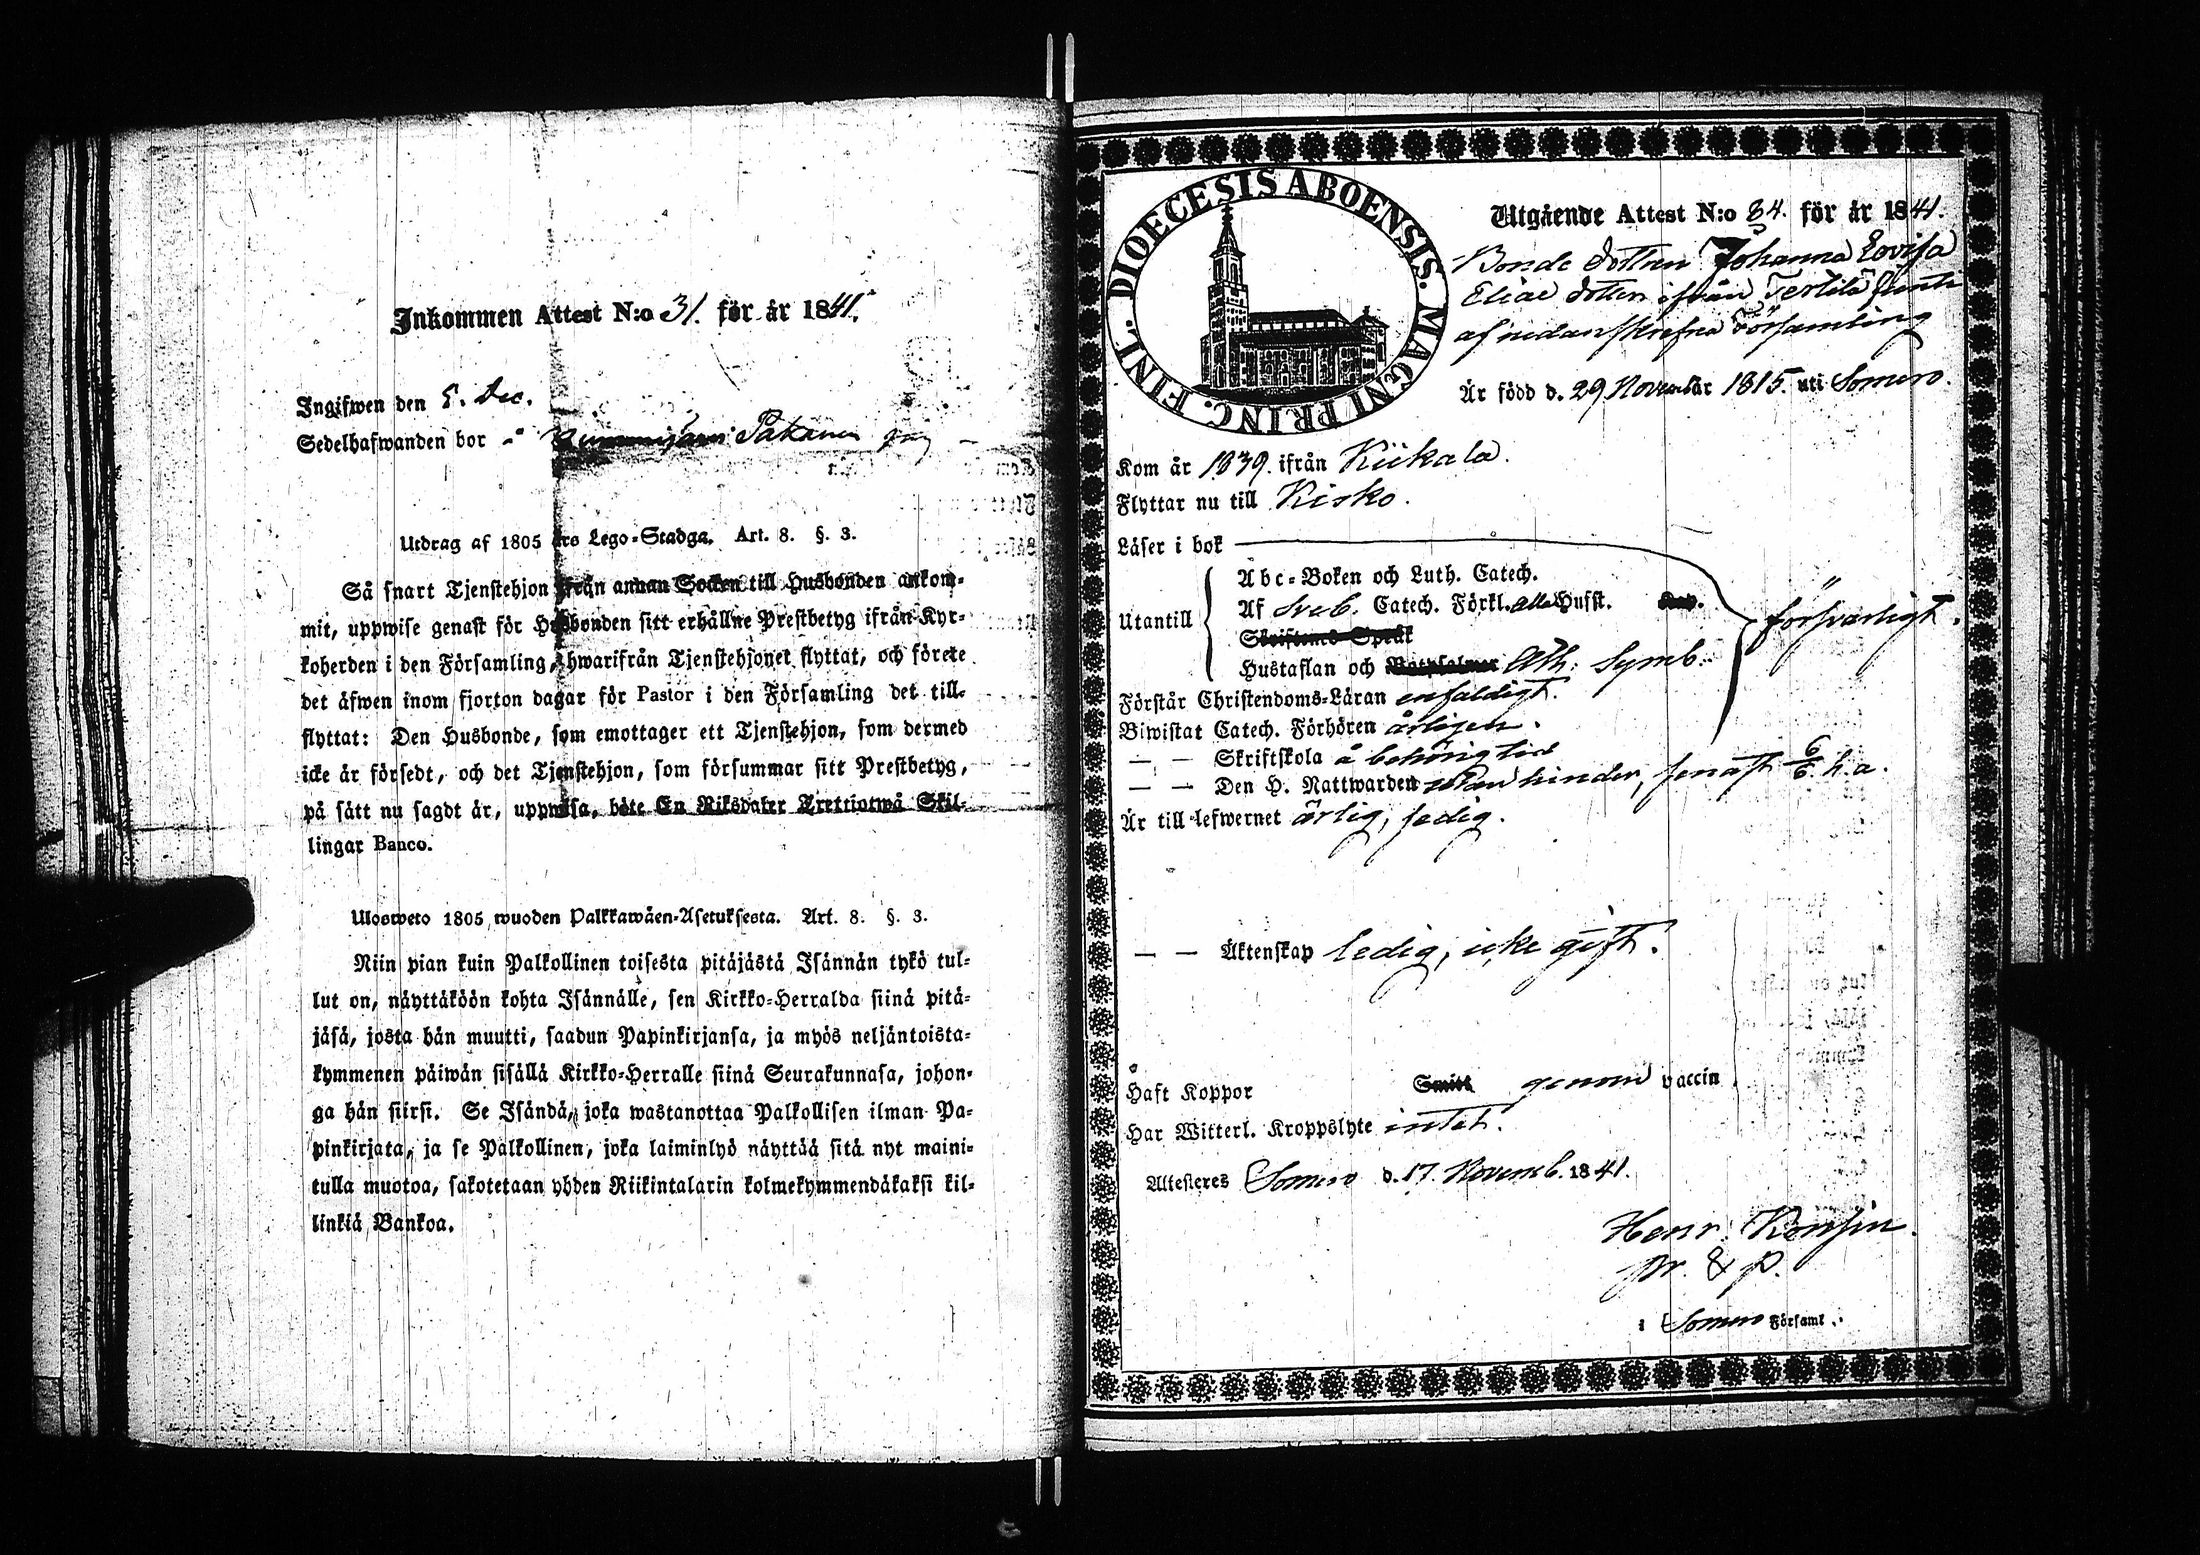 Inkommen Attest N:o 31. för år 1841.
Ingifwen den 5. Dec.
Sedelhafwanden bor å Pakanen
Utdrag af 1805 års Lego-Stadga. Art. 8. §. 3.
Så snart Tjenstehjon ifrån annan Socken till Husbonden ankom-
mit, uppwise genast för Husbonden sitt erhållne Prestbetyg ifrån Kyr-
koherden i den Församling, hwarifrån Tjenstehjonet flyttat, och förete
det äfwen inom fjorton dagar för Pastor i den Församling det till-
flyttat: Den Husbonde, som emottager ett Tjenstehjon, som dermed
icke är försedt, och det Tjenstehjon, som försummar sitt Prestbetyg,
på sätt nu sagdt är, uppwisa, böte En Riksdaler Trettiotwå Skil-
lingar Banco.
Ulosweto 1805 wuoden Palkkawäen-Asetuksesta. Art. 8. §. 3.
Niin pian kuin Palkollinen toisesta pitäjästä Isännän tykö tul-
lut on, näyttäköön kohta Isännälle, sen Kirkko-Herralda siinä pitä-
jäsä, josta hän muutti, saadun Papinkirjansa, ja myös neljäntoista-
kymmenen päiwän sisällä Kirkko-Herralle siinä Seurakunnasa, johon-
ga hän siirsi. Se Isändä, joka wastanottaa Palkollisen ilman Pa-
pinkirjata, ja se Palkollinen, joka laiminlyö näyttää sitä nyt maini-
tulla muotoa, sakotetaan yhden Riikintalarin kolmekymmendäkaksi kil-
linkiä Bankoa.
DIOECESIS ABOENSIS. MAGNI PRINC. FINL.
Utgående Attest N:o 84. för år 1841.
Bonde dottren Johanna Lovisa
Eliae dotter ifrån Terttilä
af nedanskrefna Församling
Är född d. 29 November 1815. uti Somero.
Kom år 1839. ifrån Kiikala.
Flyttar nu till Kisko.
Läser i bok
Utantill
Abc-Boken och Luth. Catech.
Af Sveb. Catech. Förkl. alla Hufst. Kap.
Skriftens Språk
Hustaflan och Botpsalmer Ath: Symb.
försvarligt.
Förstår Christendoms-Läran enfaldigt.
Biwistat Catech. Förhören årligen.
— — Skriftskola å behörig tid
— — Den H. Nattwarden utan hinder, senast 6/6 h. a.
Är till lefwernet ärlig, sedig.
— — Äktenskap ledig, icke gift.
Haft Koppor Smitt genom vaccin
Har Witterl. Kroppslyte intet.
Attesteres Somero d. 17. Novemb. 1841.
Henr:
pr. & p.
i Somero Församl.